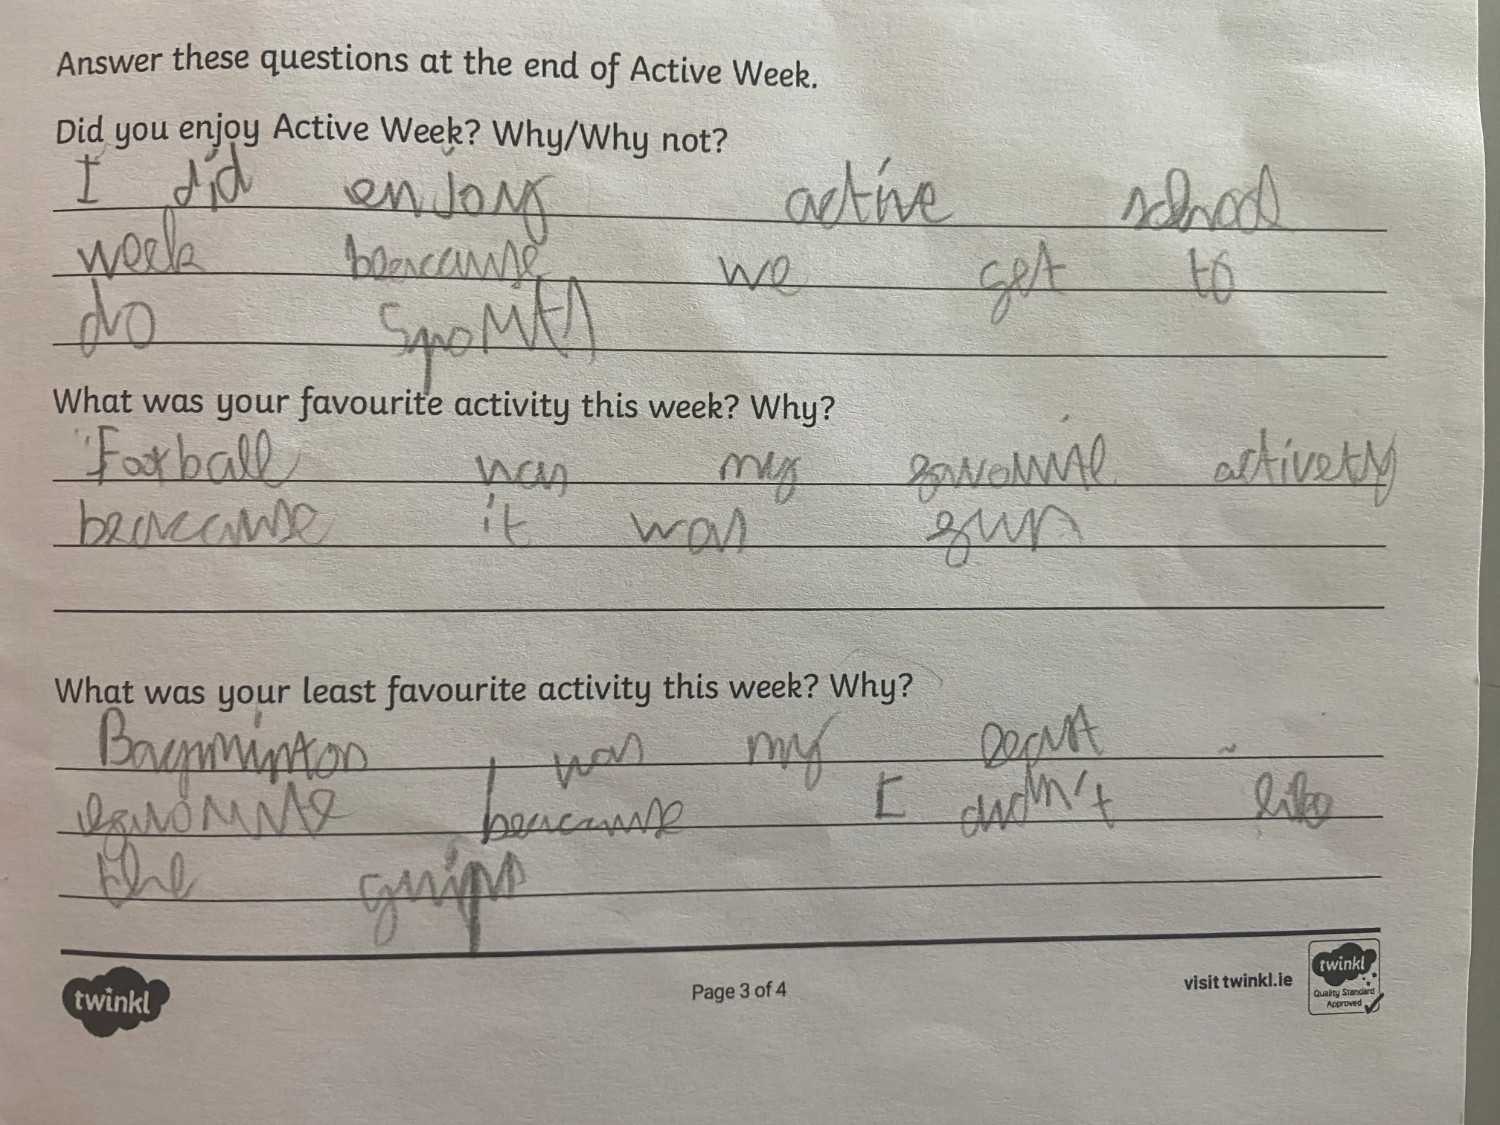 Answer these questions at the end of Active Week.
Did you enjoy Active Week? Why/Why not?
I did enjoy active school
week beacause we get to
do sports
What was your favourite activity this week? Why?
Football was my activety
beaccause it was fun
What was your least favourite activity this week? Why?
Bayminton was my least
beacause I didn't like
the grips
twinkl
Page 3 of 4
visit twinkl.ie
twinkl
Quality Standard
Approved